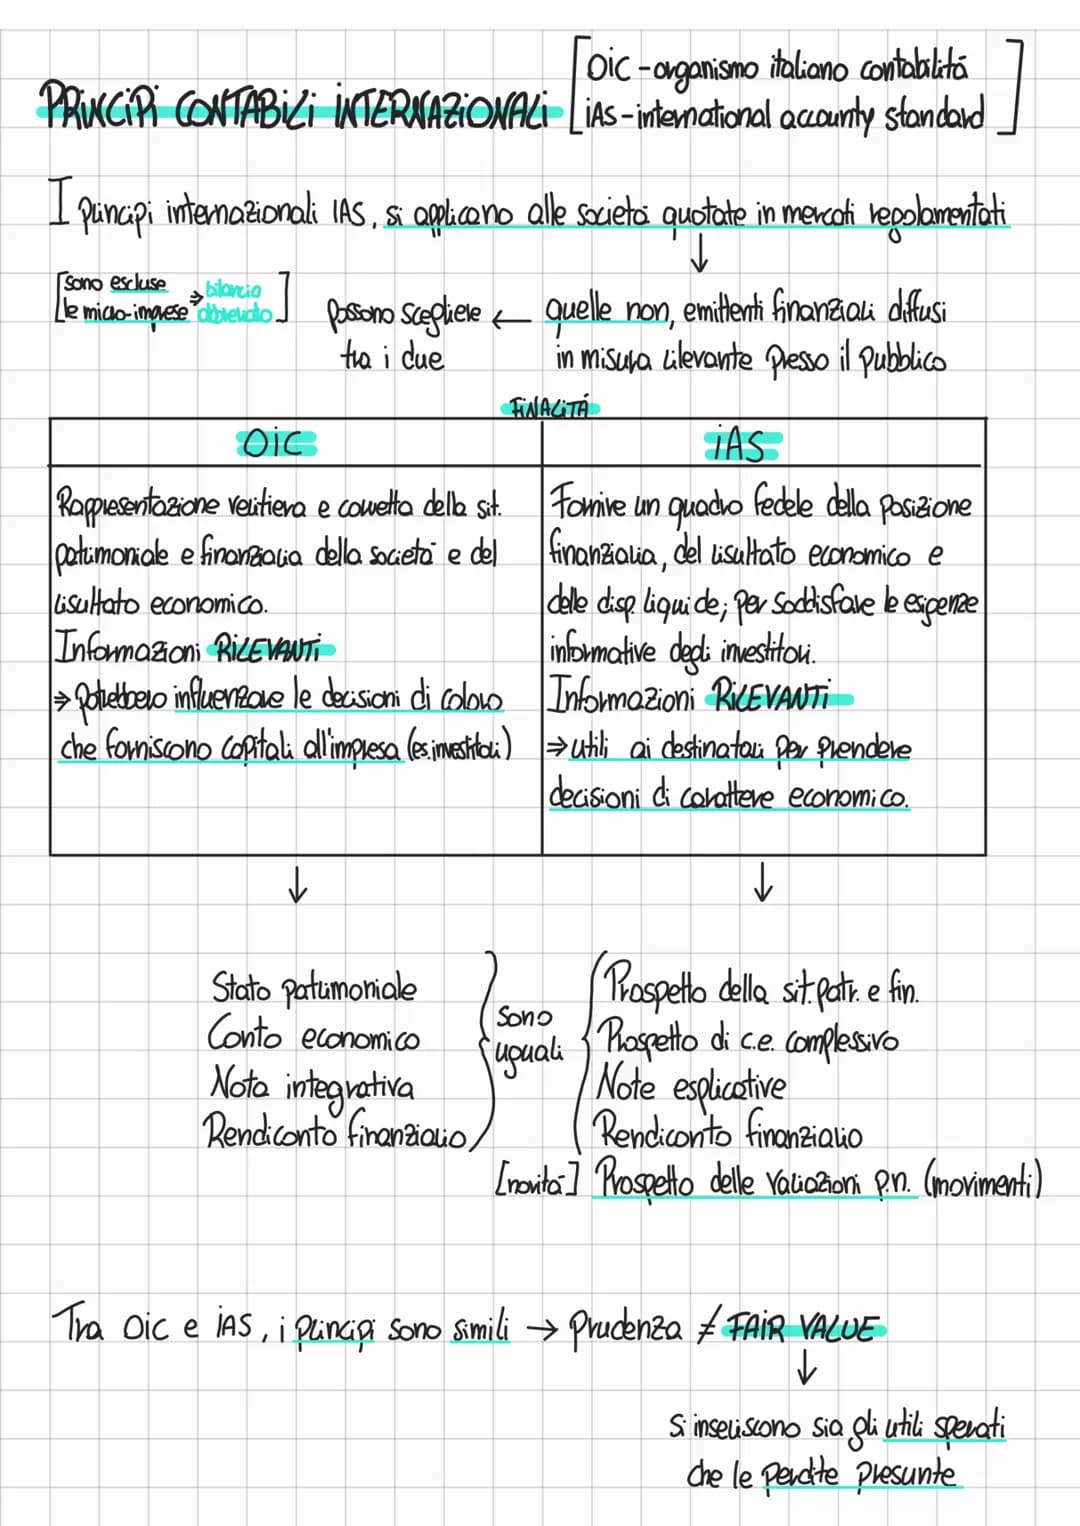 PRINCIPI CONTABILI INTERNAZIONALI
[OIC - organismo italiano contabilità
IAS - international accounty standard]
I principi internazionali IAS, si applicano alle società quotate in mercati regolamentati
↓
[sono escluse
le micro-imprese → bilancio abbreviato]
possono scegliere ← quelle non, emittenti finanziari diffusi
tra i due
in misura rilevante presso il pubblico
FINALITÁ
OIC
Rappresentazione veritiera e corretta della sit.
patrimoniale e finanziaria della società e del
risultato economico.
Informazioni RILEVANTI
⇒ potrebbero influenzare le decisioni di coloro
che forniscono capitali all'impresa (es. investitori)
IAS
Fornire un quadro fedele della posizione
finanziaria, del risultato economico e
delle disp. liquide; per soddisfare le esigenze
informative degli investitori.
Informazioni RILEVANTI
⇒ utili ai destinatari per prendere
decisioni di carattere economico.
↓
↓
Stato patrimoniale
Conto economico
Nota integrativa
Rendiconto finanziario
sono
uguali
Prospetto della sit. patr. e fin.
Prospetto di c.e. complessivo
Note esplicative
Rendiconto finanziario
[novità] Prospetto delle variazioni p.n. (movimenti)
Tra OIC e IAS, i principi sono simili → Prudenza ≠ FAIR VALUE
↓
Si inseriscono sia gli utili sperati
che le perdite presunte